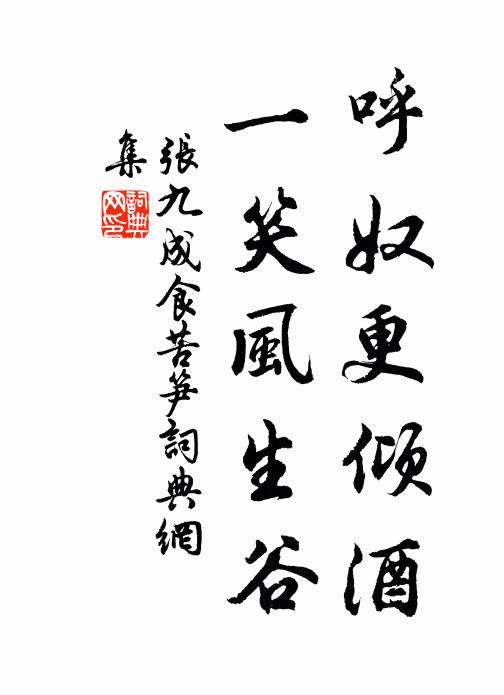 呼奴更倾酒
一笑風生谷
張九成食苦笋詞典網
集
詞典
网印